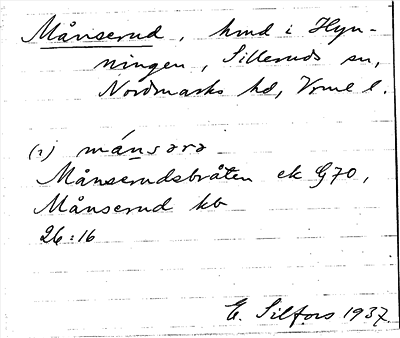 Månserud, hmd i Hyn-
ningen, Silleruds sn,
Nordmarks hd, Vrml l.
(1) månsərə
Månserudsbråten ek G70,
Månserud kb
26:16
E. Silfors 1937.